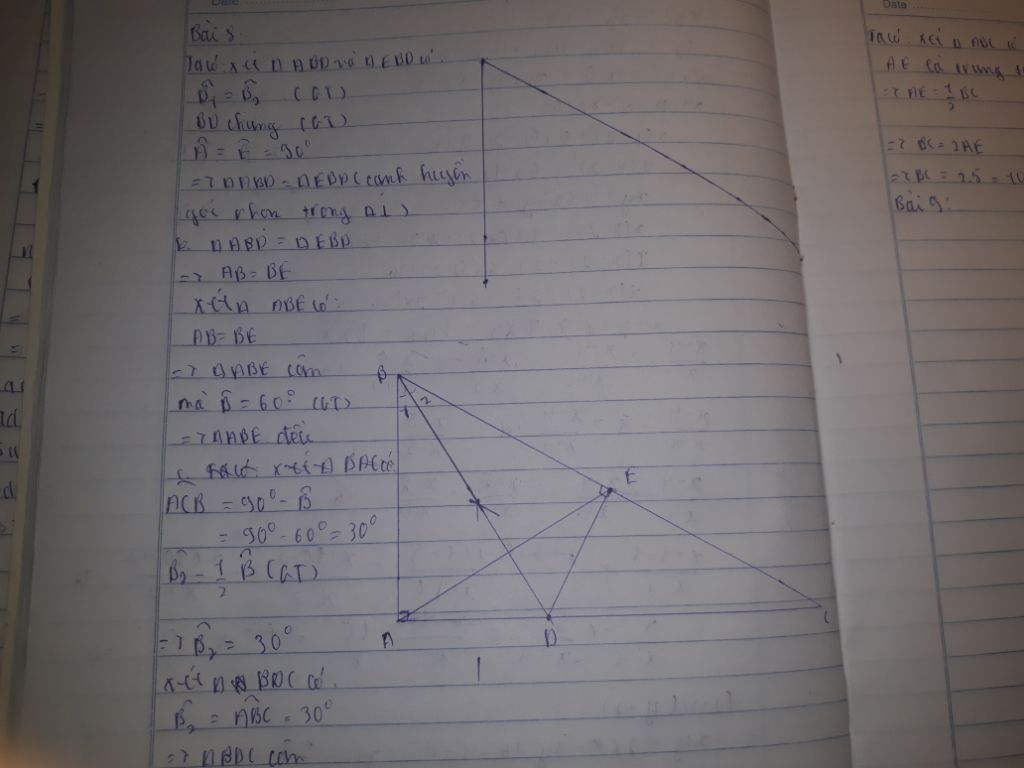 Date
Bài 8:
Ta có: xét Δ ABD và Δ EBD có:
B̂₁ = B̂₂ (GT)
BD chung (GT)
Â = Ê = 90°
=> Δ ABD = Δ EBD (cạnh huyền
góc nhọn trong Δ
b. Δ ABD = Δ EBD
=> AB = BE
xét Δ ABE có:
AB = BE
=> Δ ABE cân
mà B̂ = 60° (GT)
=> Δ ABE đều
c. xét Δ BAC có:
ACB = 90° - B̂
= 90° - 60° = 30°
B̂₂ = 1/2 B̂ (GT)
=> B̂₂ = 30°
xét Δ BDC có.
B̂₂ = ABC = 30°
=> Δ BDC cân
B
1 2
E
A
D
C
Date
Ta có: xét Δ ABC có
AE là trung
=> AE = 1/2 BC
=> BC = 2AE
=> BC = 2.5 = 10
Bài 9: